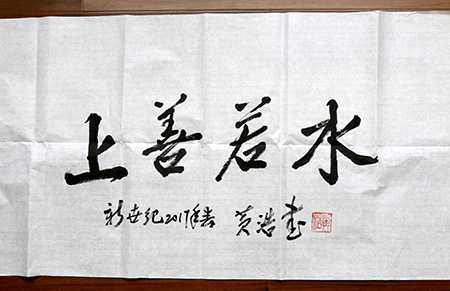 上善若水
新世纪2017年春 黄浩书